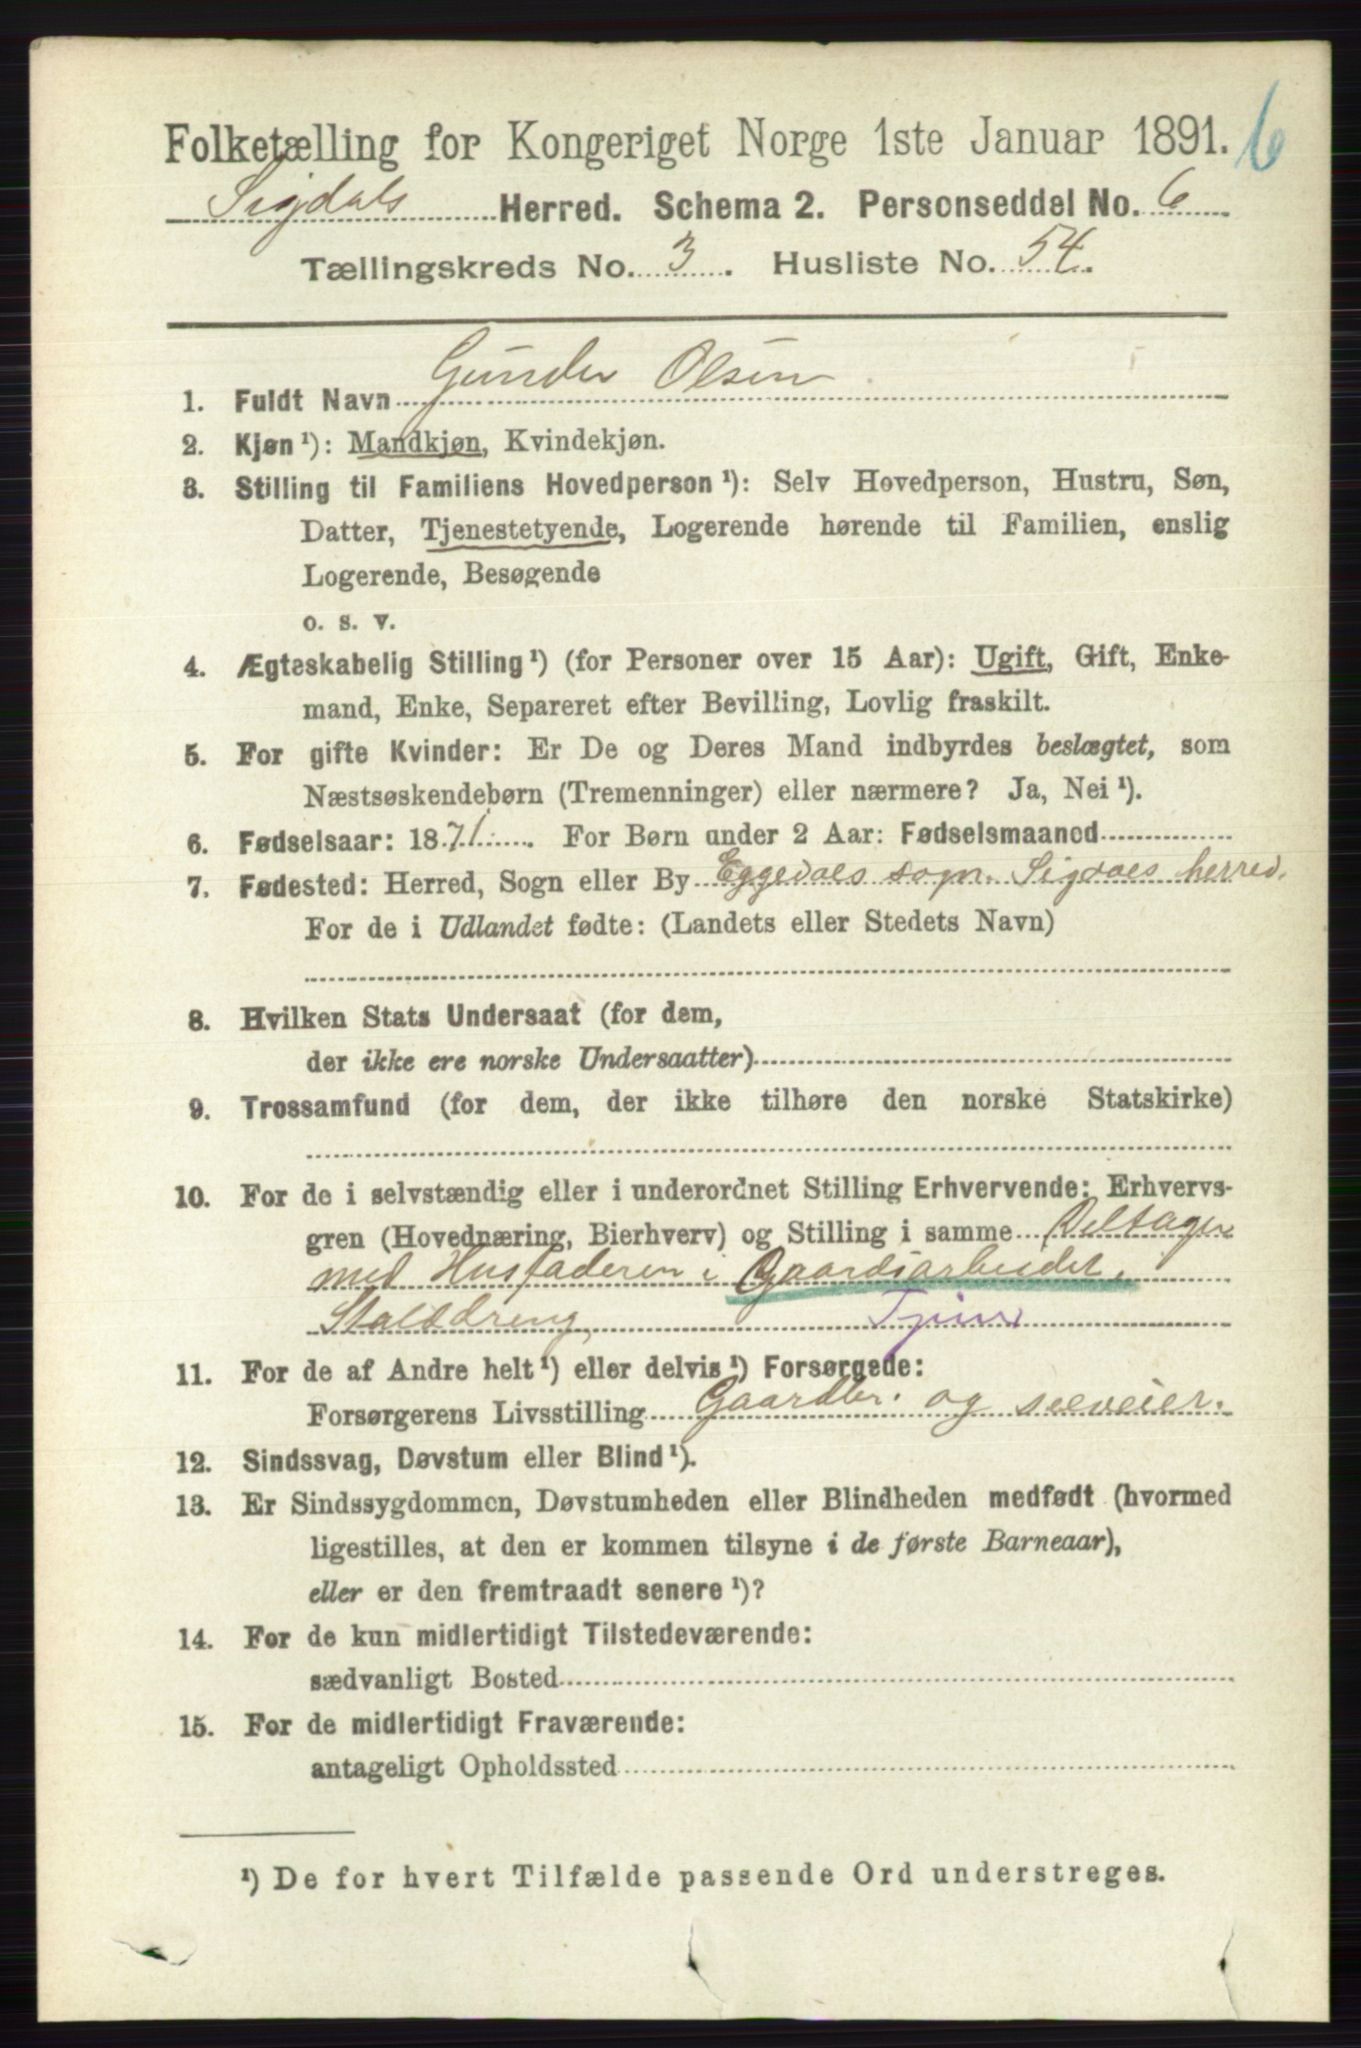 Folketælling for Kongeriget Norge 1ste Januar 1891. 6
Sigdals Herred. Schema 2. Personseddel No. 6
Tællingskreds No. 3. Husliste No. 54.
1. Fuldt Navn Gunder Olsen
2. Kjøn ¹): Mandkjøn, Kvindekjøn.
3. Stilling til Familiens Hovedperson ¹): Selv Hovedperson, Hustru, Søn,
Datter, Tjenestetyende, Logerende hørende til Familien, enslig
Logerende, Besøgende
o. s. v.
4. Ægteskabelig Stilling ¹) (for Personer over 15 Aar): Ugift, Gift, Enke-
mand, Enke, Separeret efter Bevilling, Lovlig fraskilt.
5. For gifte Kvinder: Er De og Deres Mand indbyrdes beslægtet, som
Næstsøskendebørn (Tremenninger) eller nærmere? Ja, Nei ¹).
6. Fødselsaar: 1871. For Børn under 2 Aar: Fødselsmaaned
7. Fødested: Herred, Sogn eller By Eggedals sogn. Sigdals herred.
For de i Udlandet fødte: (Landets eller Stedets Navn)
8. Hvilken Stats Undersaat (for dem,
der ikke ere norske Undersaatter)
9. Trossamfund (for dem, der ikke tilhøre den norske Statskirke)
10. For de i selvstændig eller i underordnet Stilling Erhvervende: Erhvervs-
gren (Hovednæring, Bierhverv) og Stilling i samme Deltager
med Husfaderen i Gaardsarbeidet.
Stalddreng, Tjener
11. For de af Andre helt ¹) eller delvis ¹) Forsørgede:
Forsørgerens Livsstilling Gaardbr. og selveier.
12. Sindssvag, Døvstum eller Blind ¹).
13. Er Sindssygdommen, Døvstumheden eller Blindheden medfødt (hvormed
ligestilles, at den er kommen tilsyne i de første Barneaar),
eller er den fremtraadt senere ¹)?
14. For de kun midlertidigt Tilstedeværende:
sædvanligt Bosted
15. For de midlertidigt Fraværende:
antageligt Opholdssted
¹) De for hvert Tilfælde passende Ord understreges.